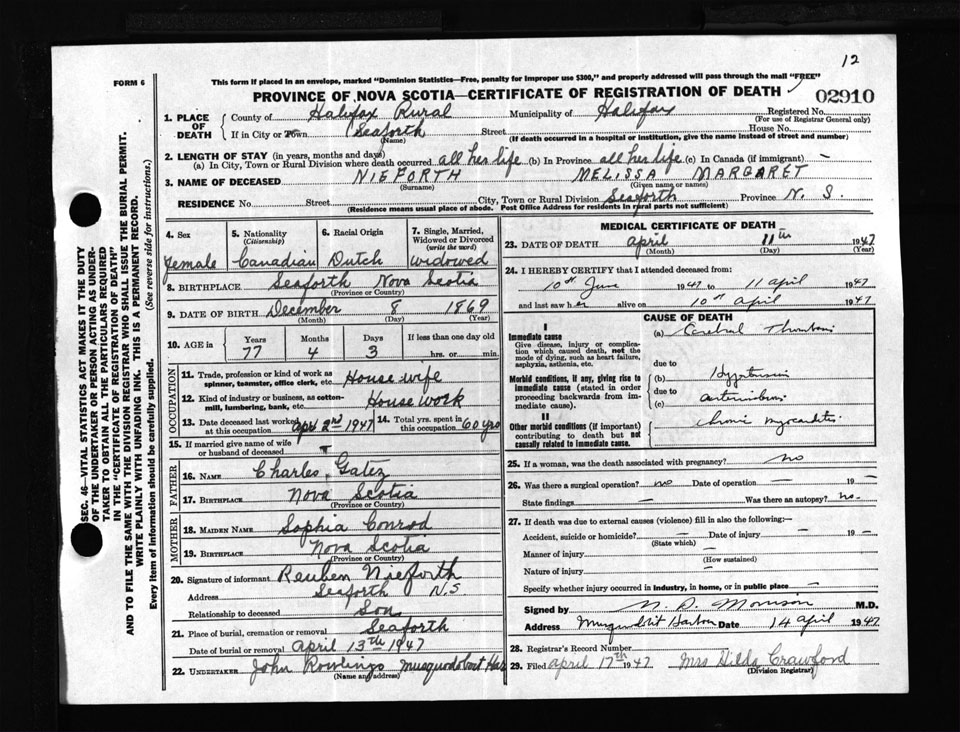 12
FORM 6
This form if placed in an envelope, marked "Dominion Statistics—Free, penalty for improper use $300," and properly addressed will pass through the mail "FREE"
PROVINCE OF NOVA SCOTIA—CERTIFICATE OF REGISTRATION OF DEATH
02910
SEC. 46—VITAL STATISTICS ACT MAKES IT THE DUTY
OF THE UNDERTAKER OR PERSON ACTING AS UNDER-
TAKER TO OBTAIN ALL THE PARTICULARS REQUIRED
IN THE "CERTIFICATE OF REGISTRATION OF DEATH"
AND TO FILE THE SAME WITH THE DIVISION REGISTRAR WHO SHALL ISSUE THE BURIAL PERMIT.
WRITE PLAINLY WITH UNFADING INK. THIS IS A PERMANENT RECORD.
Every item of information should be carefully supplied. (See reverse side for instructions.)
1. PLACE OF DEATH
County of Halifax Rural Municipality of Halifax Registered No.
(For use of Registrar General only)
If in City or Town Seaforth Street House No.
(Name) (If death occurred in a hospital or institution, give the name instead of street and number)
2. LENGTH OF STAY (in years, months and days)
(a) In City, Town or Rural Division where death occurred all her life (b) In Province all her life (c) In Canada (if immigrant) —
3. NAME OF DECEASED NIEFORTH MELISSA MARGARET
(Surname) (Given name or names)
RESIDENCE No. Street City, Town or Rural Division Seaforth Province N. S.
(Residence means usual place of abode. Post Office Address for residents in rural parts not sufficient)
4. Sex
female
5. Nationality
(Citizenship)
Canadian
6. Racial Origin
Dutch
7. Single, Married,
Widowed or Divorced
(write the word)
widowed
8. BIRTHPLACE Seaforth Nova Scotia
(Province or Country)
9. DATE OF BIRTH December 8 1869
(Month) (Day) (Year)
10. AGE in Years Months Days If less than one day old
77 4 3 hrs. or min.
OCCUPATION
11. Trade, profession or kind of work as
spinner, teamster, office clerk, etc. House wife
12. Kind of industry or business, as cotton-
mill, lumbering, bank, etc. House work
13. Date deceased last worked
at this occupation Apr 2nd 1947
14. Total yrs. spent in
this occupation 60 yrs
15. If married give name of wife
or husband of deceased
FATHER
16. NAME Charles Gatez
17. BIRTHPLACE Nova Scotia
(Province or Country)
MOTHER
18. MAIDEN NAME Sophia Conrod
19. BIRTHPLACE Nova Scotia
(Province or Country)
20. Signature of informant Reuben Nieforth
Address Seaforth N.S
Relationship to deceased Son
21. Place of burial, cremation or removal Seaforth
Date of burial or removal April 13th 1947
22. UNDERTAKER John Rowlings Musquodoboit Har
(Name and address)
MEDICAL CERTIFICATE OF DEATH
23. DATE OF DEATH April 11th 1947
(Month) (Day) (Year)
24. I HEREBY CERTIFY that I attended deceased from:
10th June 1947 to 11 April 1947
and last saw her alive on 10th April 1947
CAUSE OF DEATH
I
Immediate cause
Give disease, injury or complica-
tion which caused death, not the
mode of dying, such as heart failure,
asphyxia, asthenia, etc.
(a) Cerebral Thrombosis
due to
Morbid conditions, if any, giving rise to
immediate cause (stated in order
proceeding backwards from im-
mediate cause).
(b) Hypertension
due to
(c)
II
Other morbid conditions (if important)
contributing to death but not
causally related to immediate cause.
Chronic myocarditis
25. If a woman, was the death associated with pregnancy? no
26. Was there a surgical operation? no Date of operation — 19 —
State findings — Was there an autopsy? no.
27. If death was due to external causes (violence) fill in also the following:—
Accident, suicide or homicide? — Date of injury — 19 —
(State which)
Manner of injury —
(How sustained)
Nature of injury —
Specify whether injury occurred in industry, in home, or in public place —
Signed by N. D. Morrison M.D.
Address Musquodoboit Harbour Date 14 April 1947
28. Registrar's Record Number
29. Filed April 17th 1947 Mrs Hilda Crawford
(Division Registrar)